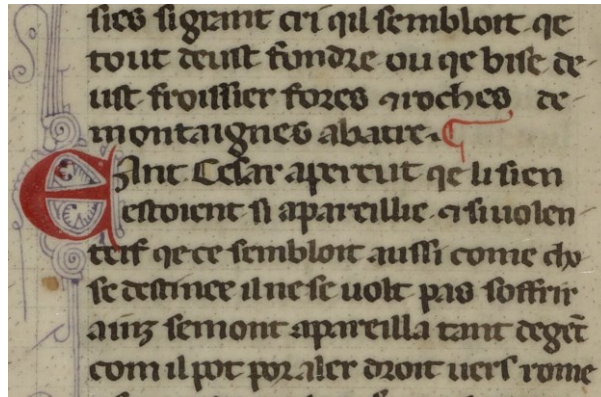 sies si grant cri qil sembloit qe
tout deust fondre ou qe bise de-
ust froissier fores ⁊ roches de-
montaignes abatre. ¶
Cant Cesar aperceut qe li sien
estoient si apareillie. ⁊ si uolen-
teif qe ce sembloit aussi come cho
se destinee il ne se uolt pas soffrir
ainz semont apareilla tant de gēt
com il pot por aler droit uers rome